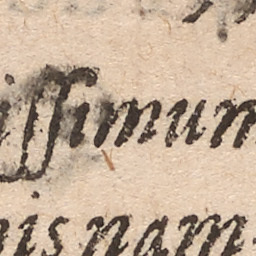 iſſimum
nis nam-